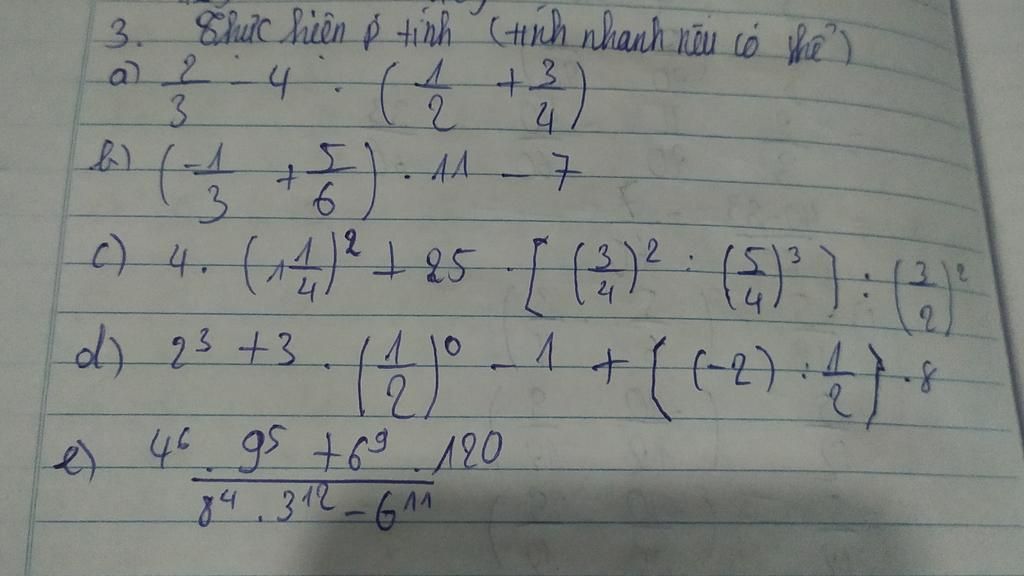 3. Thực hiện p tính (tính nhanh nếu có thể)
a) 2/3 - 4 . (1/2 + 3/4)
b) (-1/3 + 5/6) . 11 - 7
c) 4 . (1 1/4)² + 25 . [(3/4)² : (5/4)³] : (3/2)²
d) 2³ + 3 . (1/2)⁰ - 1 + [(-2) : 1/2] . 8
e) (4⁶ . 9⁵ + 6⁹ . 120) / (8⁴ . 3¹² - 6¹¹)